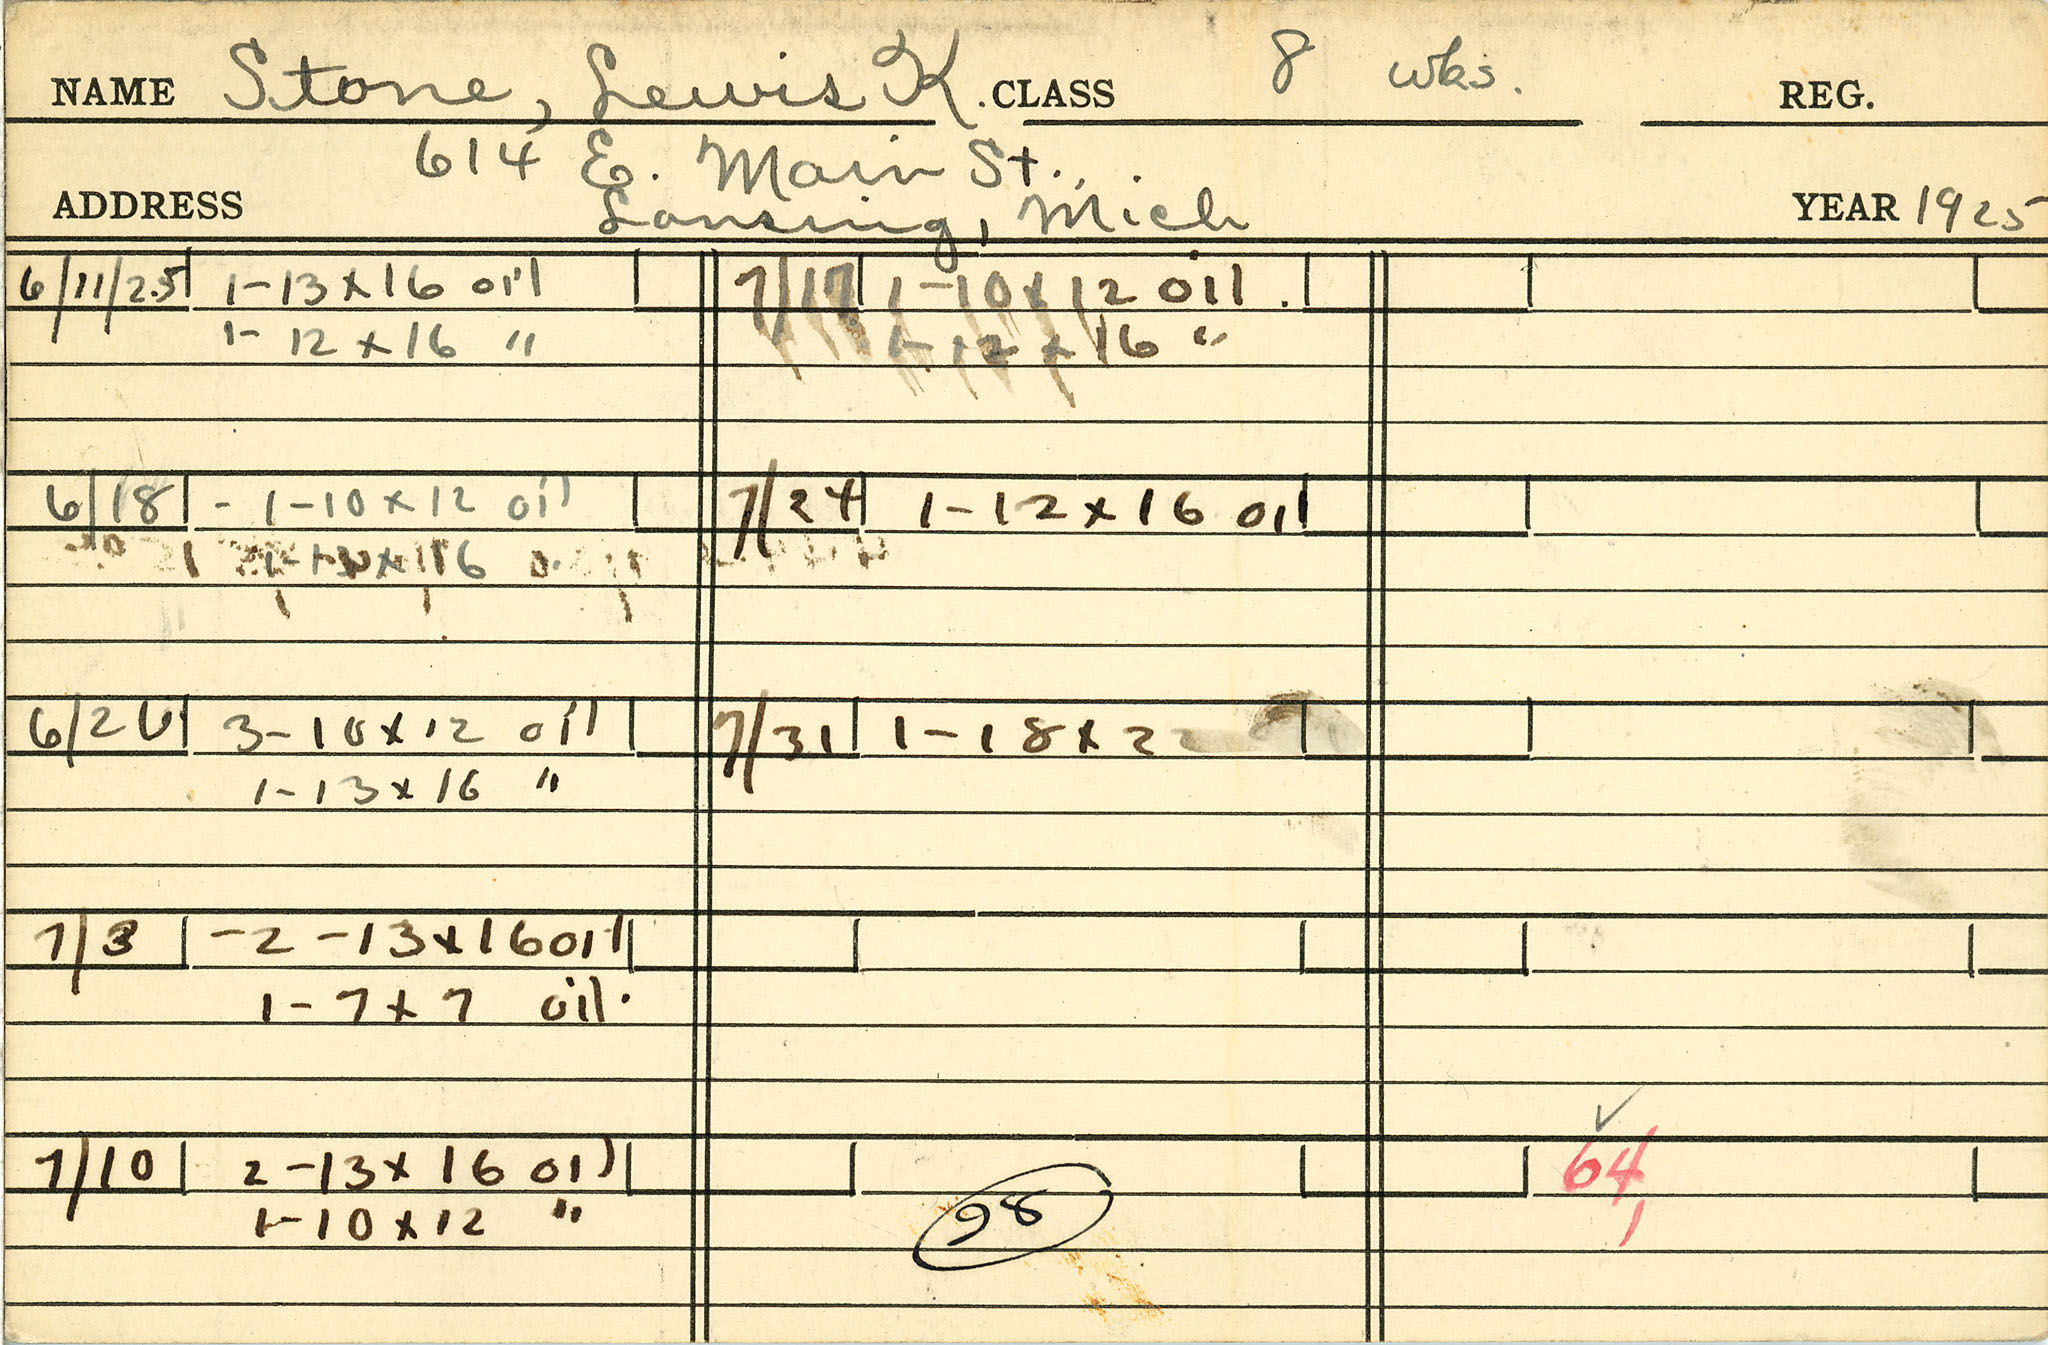 NAME Stone, Lewis K. CLASS 8 wks. REG.
614 E. Main St.,
ADDRESS Lansing, Mich YEAR 1925
6/11/25 1-13x16 oil
1-12x16 "
6/18 - 1-10x12 oil
1-12x16
6/26 3-10x12 oil
1-13x16 "
7/3 -2-13x16 oil
1-7x7 oil.
7/10 2-13x16 oil
1-10x12 "
7/17 1-10x12 oil.
1-12x16 "
7/24 1-12x16 oil
7/31 1-18x22
28
✓
64